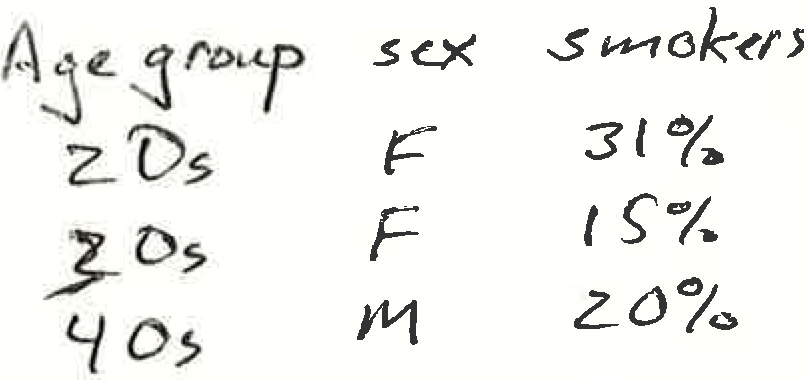 Age group sex smokers
20s F 31%
30s F 15%
40s M 20%